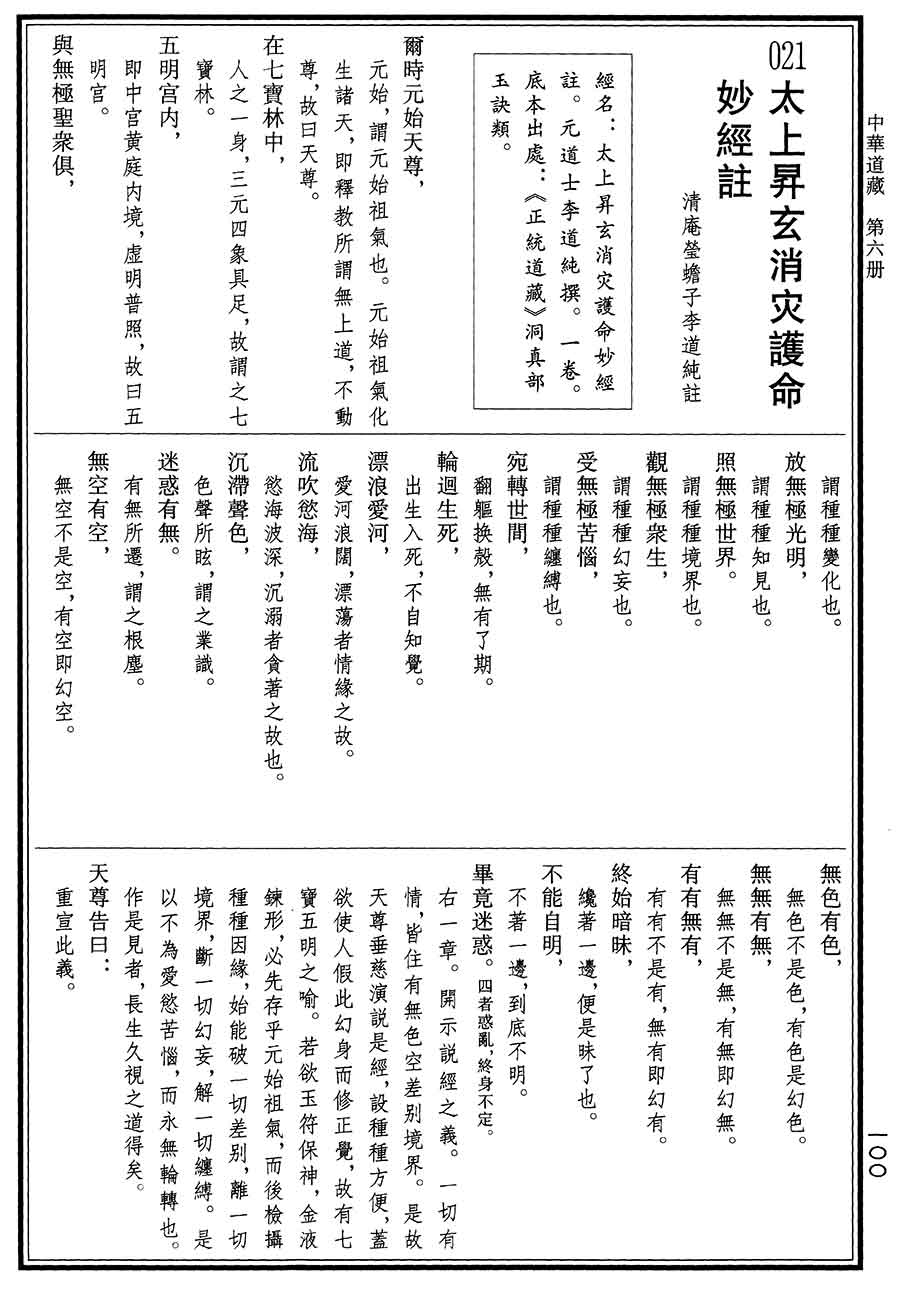 中華道藏　第六册
021 太上昇玄消灾護命
妙經註
清庵瑩蟾子李道純註
經名：太上昇玄消灾護命妙經
註。元道士李道純撰。一卷。
底本出處：《正統道藏》洞真部
玉訣類。
爾時元始天尊，
元始，謂元始祖氣也。元始祖氣化
生諸天，即釋教所謂無上道，不動
尊，故曰天尊。
在七寶林中，
人之一身，三元四象具足，故謂之七
寶林。
五明宫内，
即中宫黄庭内境，虚明普照，故曰五
明宫。
與無極聖衆俱，
謂種種變化也。
放無極光明，
謂種種知見也。
照無極世界。
謂種種境界也。
觀無極衆生，
謂種種幻妄也。
受無極苦惱，
謂種種纏縛也。
宛轉世間，
翻軀换殼，無有了期。
輪迴生死，
出生入死，不自知覺。
漂浪愛河，
愛河浪闊，漂蕩者情緣之故。
流吹慾海，
慾海波深，沉溺者貪著之故也。
沉滯聲色，
色聲所眩，謂之業識。
迷惑有無。
有無所遷，謂之根塵。
無空有空，
無空不是空，有空即幻空。
無色有色，
無色不是色，有色是幻色。
無無有無，
無無不是無，有無即幻無。
有有無有，
有有不是有，無有即幻有。
終始暗昧，
纔著一邊，便是昧了也。
不能自明，
不著一邊，到底不明。
畢竟迷惑。四者惑亂，終身不定。
右一章。開示説經之義。一切有
情，皆住有無色空差别境界。是故
天尊垂慈演説是經，設種種方便，蓋
欲使人假此幻身而修正覺，故有七
寶五明之喻。若欲玉符保神，金液
鍊形，必先存乎元始祖氣，而後檢攝
種種因緣，始能破一切差别，離一切
境界，斷一切幻妄，解一切纏縛。是
以不為愛慾苦惱，而永無輪轉也。
作是見者，長生久視之道得矣。
天尊告曰：
重宣此義。
一〇〇